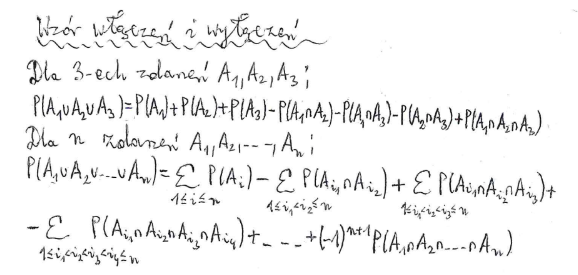 Wzór włączeń i wyłączeń
Dla 3-ech zdarzeń A₁, A₂, A₃;
P(A₁∪A₂∪A₃)=P(A₁)+P(A₂)+P(A₃)-P(A₁∩A₂)-P(A₁∩A₃)-P(A₂∩A₃)+P(A₁∩A₂∩A₃)
Dla n zdarzeń A₁, A₂, ..., Aₙ;
P(A₁∪A₂∪...∪Aₙ)= ∑ P(Aᵢ) - ∑ P(Aᵢ₁∩Aᵢ₂) + ∑ P(Aᵢ₁∩Aᵢ₂∩Aᵢ₃)+
1≤i≤n 1≤i₁<i₂≤n 1≤i₁<i₂<i₃≤n
- ∑ P(Aᵢ₁∩Aᵢ₂∩Aᵢ₃∩Aᵢ₄)+...+(-1)ⁿ⁺¹P(A₁∩A₂∩...∩Aₙ)
1≤i₁<i₂<i₃<i₄≤n